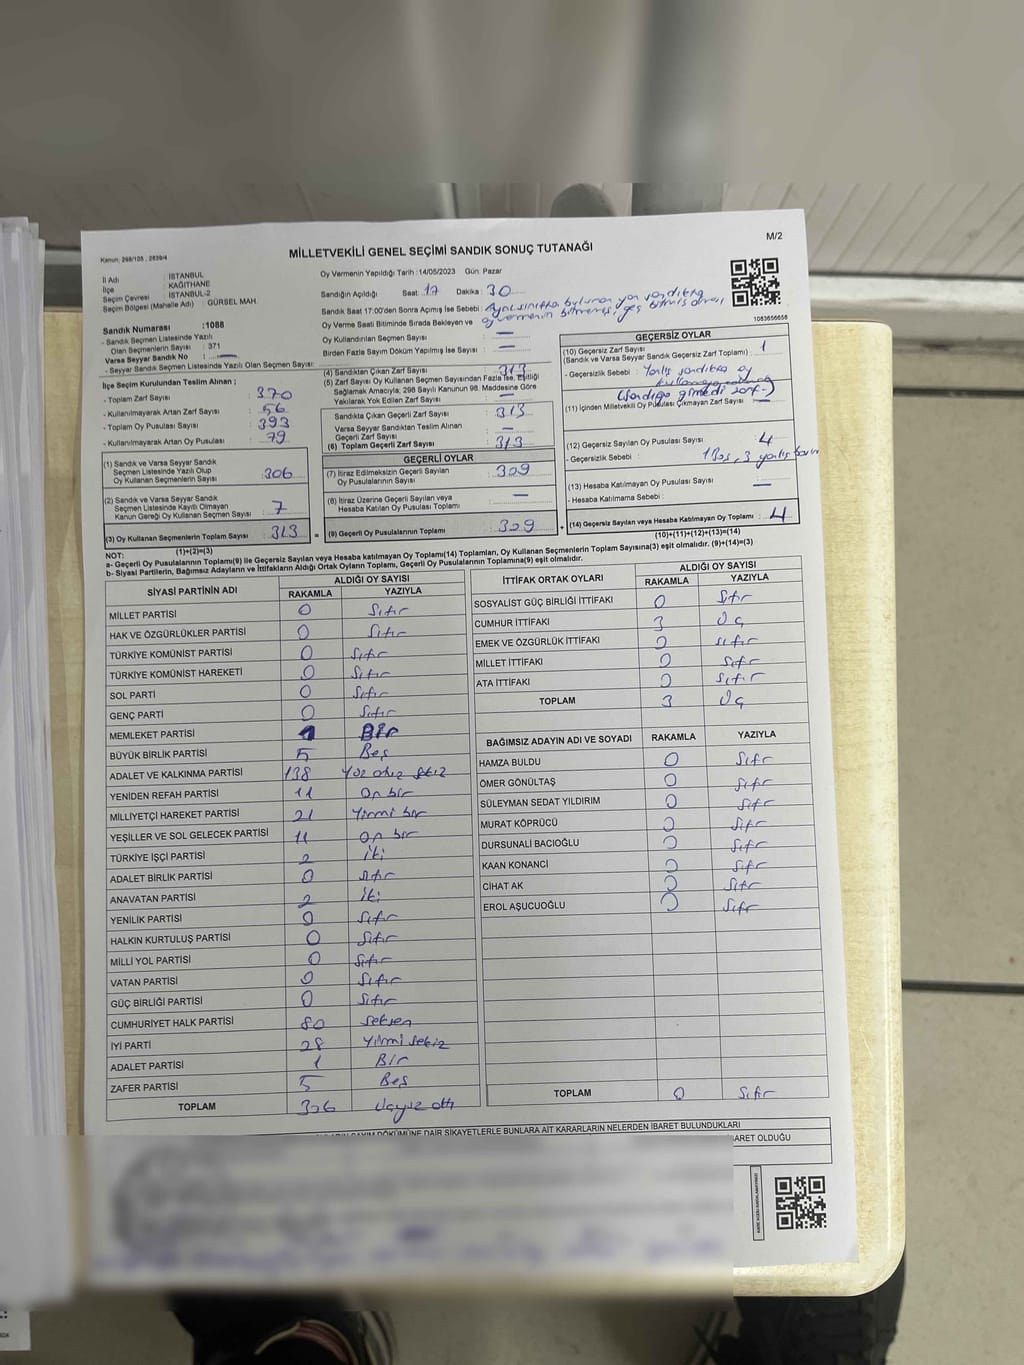 M/2
Kanun: 298/105 , 2839/4
MİLLETVEKİLİ GENEL SEÇİMİ SANDIK SONUÇ TUTANAĞI
İl Adı : İSTANBUL
İlçe : KAĞITHANE
Seçim Çevresi : İSTANBUL-2
Seçim Bölgesi (Mahalle Adı) : GÜRSEL MAH.
Oy Vermenin Yapıldığı Tarih : 14/05/2023 Gün: Pazar
Sandığın Açıldığı Saat: 17 Dakika : 30
Sandık Saat 17:00'den Sonra Açılmış İse Sebebi :
Oy Verme Saati Bitiminde Sırada Bekleyen ve
Oy Kullandırılan Seçmen Sayısı : —
Birden Fazla Sayım Döküm Yapılmış İse Sayısı : —
1083656658
Sandık Numarası :1088
- Sandık Seçmen Listesinde Yazılı
Olan Seçmenlerin Sayısı : 371
Varsa Seyyar Sandık No : —
- Seyyar Sandık Seçmen Listesinde Yazılı Olan Seçmen Sayısı:
İlçe Seçim Kurulundan Teslim Alınan ;
- Toplam Zarf Sayısı : 370
- Kullanılmayarak Artan Zarf Sayısı : 56
- Toplam Oy Pusulası Sayısı : 393
- Kullanılmayarak Artan Oy Pusulası : 79
(1) Sandık ve Varsa Seyyar Sandık
Seçmen Listesinde Yazılı Olup
Oy Kullanan Seçmenlerin Sayısı : 306
(2) Sandık ve Varsa Seyyar Sandık
Seçmen Listesinde Kayıtlı Olmayan
Kanun Gereği Oy Kullanan Seçmen Sayısı : 7
(3) Oy Kullanan Seçmenlerin Toplam Sayısı : 313
(1)+(2)=(3)
(4) Sandıktan Çıkan Zarf Sayısı : 313
(5) Zarf Sayısı Oy Kullanan Seçmen Sayısından Fazla İse, Eşitliği
Sağlamak Amacıyla; 298 Sayılı Kanunun 98. Maddesine Göre
Yakılarak Yok Edilen Zarf Sayısı :
Sandıkta Çıkan Geçerli Zarf Sayısı : 313
Varsa Seyyar Sandıktan Teslim Alınan
Geçerli Zarf Sayısı : —
(6) Toplam Geçerli Zarf Sayısı : 313
GEÇERLİ OYLAR
(7) İtiraz Edilmeksizin Geçerli Sayılan
Oy Pusulası Sayısı : 309
(8) İtiraz Üzerine Geçerli Sayılan veya
Hesaba Katılan Oy Pusulası Toplamı : —
= (9) Geçerli Oy Pusulalarının Toplamı : 309
GEÇERSİZ OYLAR
(10) Geçersiz Zarf Sayısı
(Sandık ve Varsa Seyyar Sandık Geçersiz Zarf Toplamı) : 1
- Geçersizlik Sebebi : Yanlış sandıkta oy
(Sandığa girmedi zarf)
(11) İçinden Milletvekili Oy Pusulası Çıkmayan Zarf Sayısı : —
(12) Geçersiz Sayılan Oy Pusulası Sayısı : 4
- Geçersizlik Sebebi : 1 Boş, 3 yanlış
(13) Hesaba Katılmayan Oy Pusulası Sayısı : —
- Hesaba Katılmama Sebebi :
+ (14) Geçersiz Sayılan veya Hesaba Katılmayan Oy Toplamı : 4
(10)+(11)+(12)+(13)=(14)
NOT:
a- Geçerli Oy Pusulalarının Toplamı(9) ile Geçersiz Sayılan veya Hesaba katılmayan Oy Toplamı(14) Toplamları, Oy Kullanan Seçmenlerin Toplam Sayısına(3) eşit olmalıdır. (9)+(14)=(3)
b- Siyasi Partilerin, Bağımsız Adayların ve İttifakların Aldığı Ortak Oyların Toplamı, Geçerli Oy Pusulalarının Toplamına(9) eşit olmalıdır.
SİYASİ PARTİNİN ADI ALDIĞI OY SAYISI
RAKAMLA YAZIYLA
MİLLET PARTİSİ 0 Sıfır
HAK VE ÖZGÜRLÜKLER PARTİSİ 0 Sıfır
TÜRKİYE KOMÜNİST PARTİSİ 0 Sıfır
TÜRKİYE KOMÜNİST HAREKETİ 0 Sıfır
SOL PARTİ 0 Sıfır
GENÇ PARTİ 0 Sıfır
MEMLEKET PARTİSİ 1 Bir
BÜYÜK BİRLİK PARTİSİ 5 Beş
ADALET VE KALKINMA PARTİSİ 138 Yüz otuz sekiz
YENİDEN REFAH PARTİSİ 11 On bir
MİLLİYETÇİ HAREKET PARTİSİ 21 Yirmi bir
YEŞİLLER VE SOL GELECEK PARTİSİ 11 On bir
TÜRKİYE İŞÇİ PARTİSİ 2 İki
ADALET BİRLİK PARTİSİ 0 Sıfır
ANAVATAN PARTİSİ 2 İki
YENİLİK PARTİSİ 0 Sıfır
HALKIN KURTULUŞ PARTİSİ 0 Sıfır
MİLLİ YOL PARTİSİ 0 Sıfır
VATAN PARTİSİ 0 Sıfır
GÜÇ BİRLİĞİ PARTİSİ 0 Sıfır
CUMHURİYET HALK PARTİSİ 80 Seksen
İYİ PARTİ 28 Yirmi sekiz
ADALET PARTİSİ 1 Bir
ZAFER PARTİSİ 5 Beş
TOPLAM 306 Üçyüz altı
İTTİFAK ORTAK OYLARI ALDIĞI OY SAYISI
RAKAMLA YAZIYLA
SOSYALİST GÜÇ BİRLİĞİ İTTİFAKI 0 Sıfır
CUMHUR İTTİFAKI 3 Üç
EMEK VE ÖZGÜRLÜK İTTİFAKI 0 Sıfır
MİLLET İTTİFAKI 0 Sıfır
ATA İTTİFAKI 0 Sıfır
TOPLAM 3 Üç
BAĞIMSIZ ADAYIN ADI VE SOYADI RAKAMLA YAZIYLA
HAMZA BULDU 0 Sıfır
ÖMER GÖNÜLTAŞ 0 Sıfır
SÜLEYMAN SEDAT YILDIRIM 0 Sıfır
MURAT KÖPRÜCÜ 0 Sıfır
DURSUNALİ BACIOĞLU 0 Sıfır
KAAN KONANCİ 0 Sıfır
CİHAT AK 0 Sıfır
EROL AŞUCUOĞLU 0 Sıfır
TOPLAM 0 Sıfır
DÖKÜMÜNE DAİR ŞİKAYETLERLE BUNLARA AİT KARARLARIN NELERDEN İBARET BULUNDUKLARI
İBARET OLDUĞU